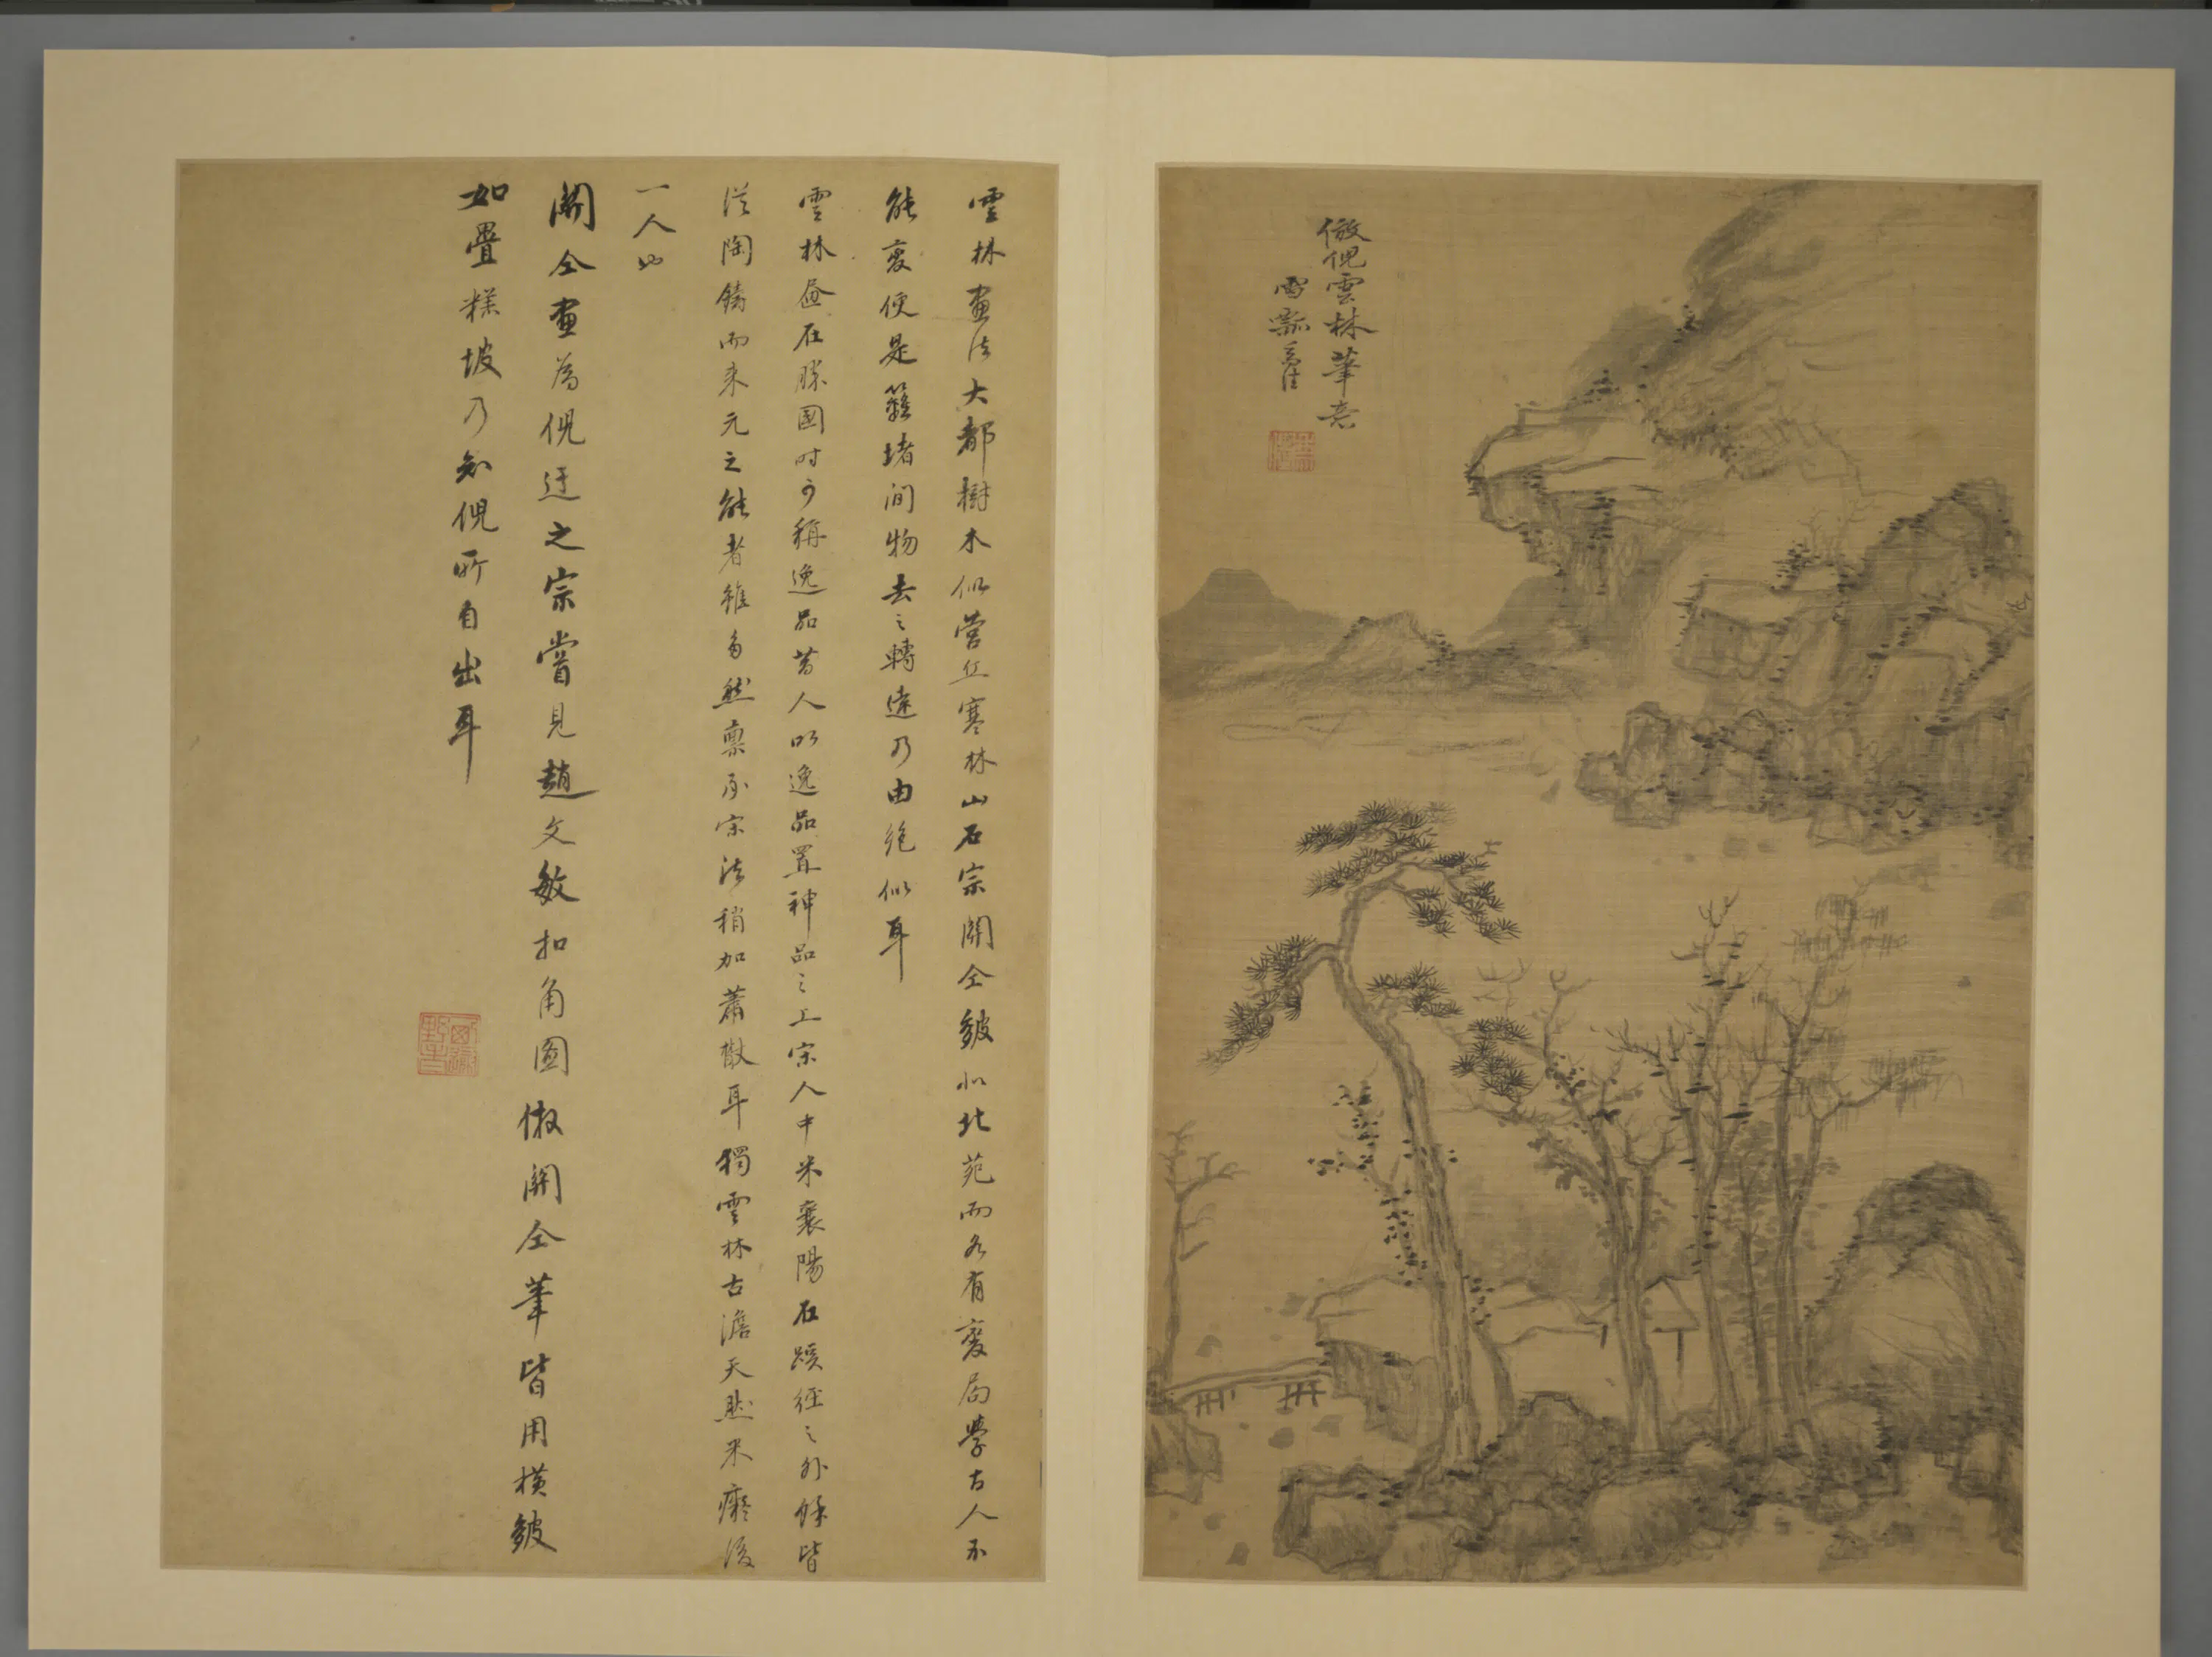 倣倪雲林筆意
雪瓢
雲林畫法大都樹木似營丘寒林山石宗關仝皴似北苑而各有變局學古人不
能變便是籬堵間物去之轉遠乃由絕似耳
雲林畫在勝國時可稱逸品昔人以逸品置神品之上宋人中米襄陽在蹊徑之外餘皆
從陶鑄而來元之能者雖多然稟承宋法稍加蕭散耳獨雲林古澹天然米癡後
一人也
關仝畫為倪迂之宗嘗見趙文敏扣角圖倣關仝筆皆用橫皴
如疊糕坡乃知倪所自出耳